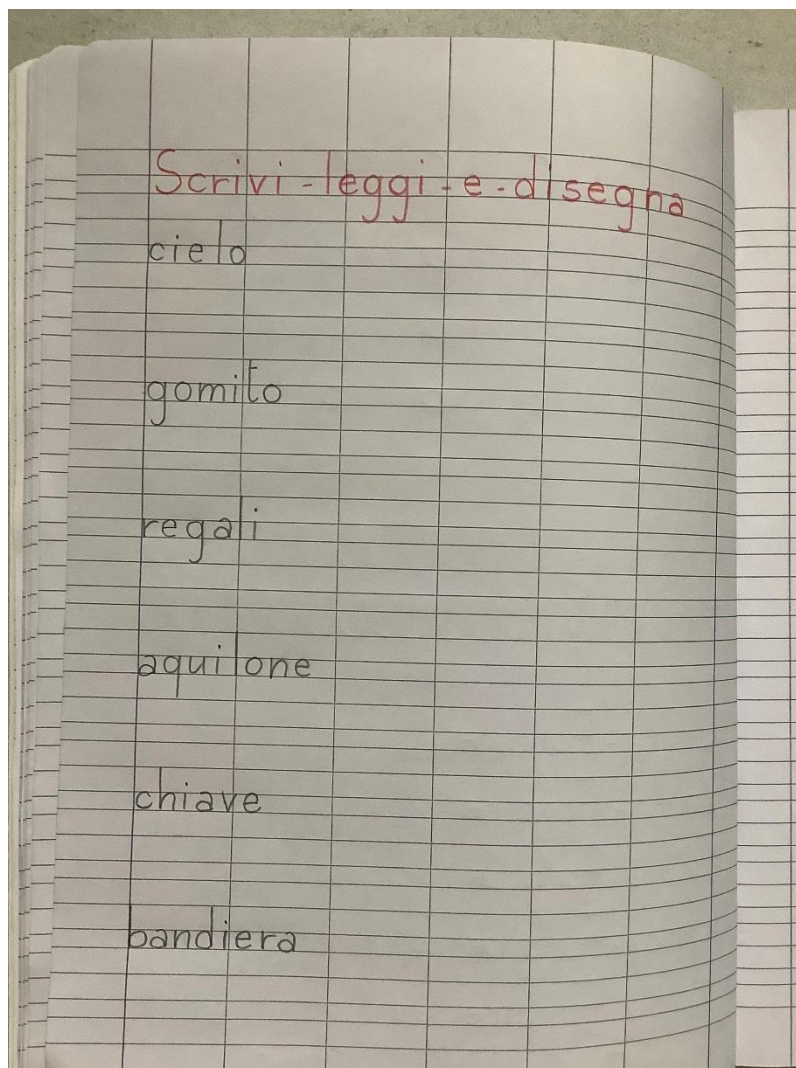 Scrivi-leggi-e-disegna
cielo
gomito
regali
aquilone
chiave
bandiera